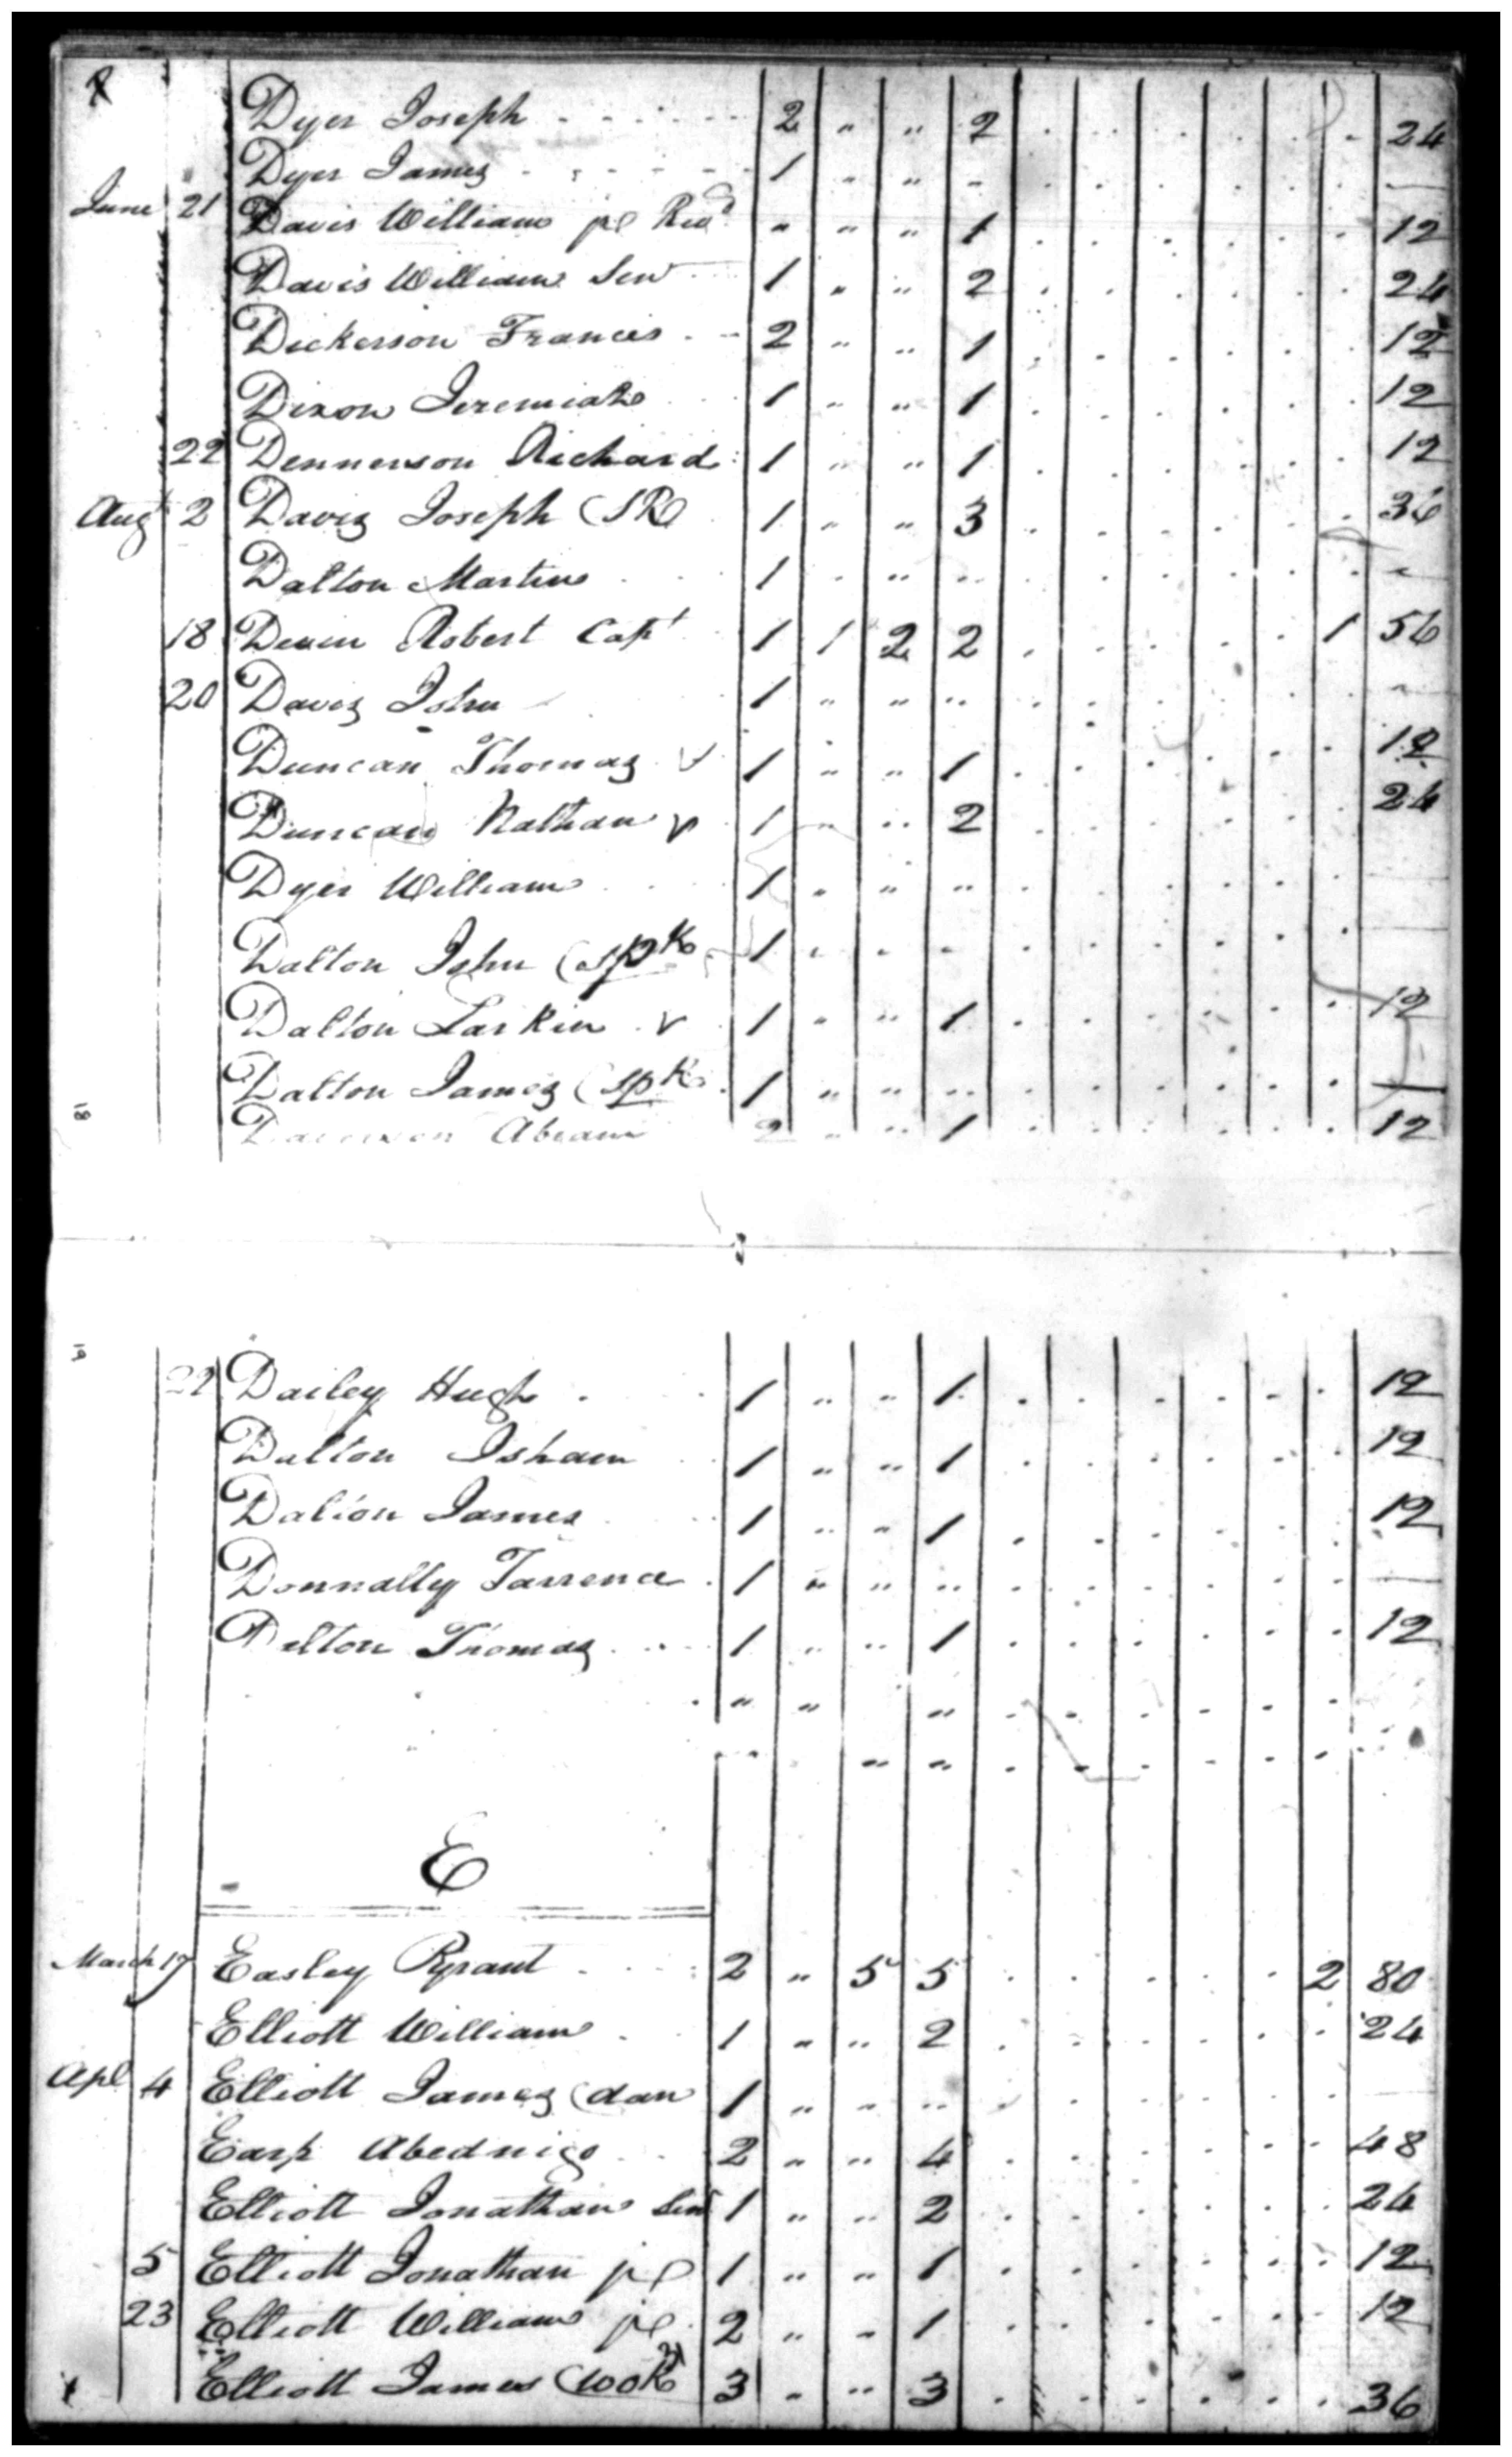 Dyer Joseph 2 " " 2 24
Dyer James 1 " " "
June 21 Davis William jr Revd " " " 1 12
Davis William Senr 1 " " 2 24
Dickerson Francis 2 " " 1 12
Dixon Jeremiah 1 " " 1 12
22 Dennerson Richard 1 " " 1 12
Augt 2 Davis Joseph (SR) 1 " " 3 36
Dalton Martin 1 " " "
18 Devin Robert Capt 1 1 2 2 1 56
20 Davis John 1 " " "
Duncan Thomas v 1 " " 1 12
Duncan Nathan v 1 " " 2 24
Dyer William 1 " " "
Dalton John (spk 1 " " "
Dalton Larkin v 1 " " 1 12
Dalton James (spk 1 " " "
18
Abram 2 " " 1 12
19
22 Dailey Hugh 1 " " 1 12
Dalton Isham 1 " " 1 12
Dalton James 1 " " 1 12
Donnally Tarrence 1 " " "
Dalton Thomas 1 " " 1 12
" " "
" " "
E
March 17 Easley Pyrant 2 " 5 5 2 80
Elliott William 1 " " 2 24
Apl 4 Elliott James (dan 1 " " "
Earp Abednigo 2 " " 4 48
Elliott Jonathan Senr 1 " " 2 24
5 Elliott Jonathan jr 1 " " 1 12
23 Elliott William jr 2 " " 1 12
Elliott James 3 " " 3 36